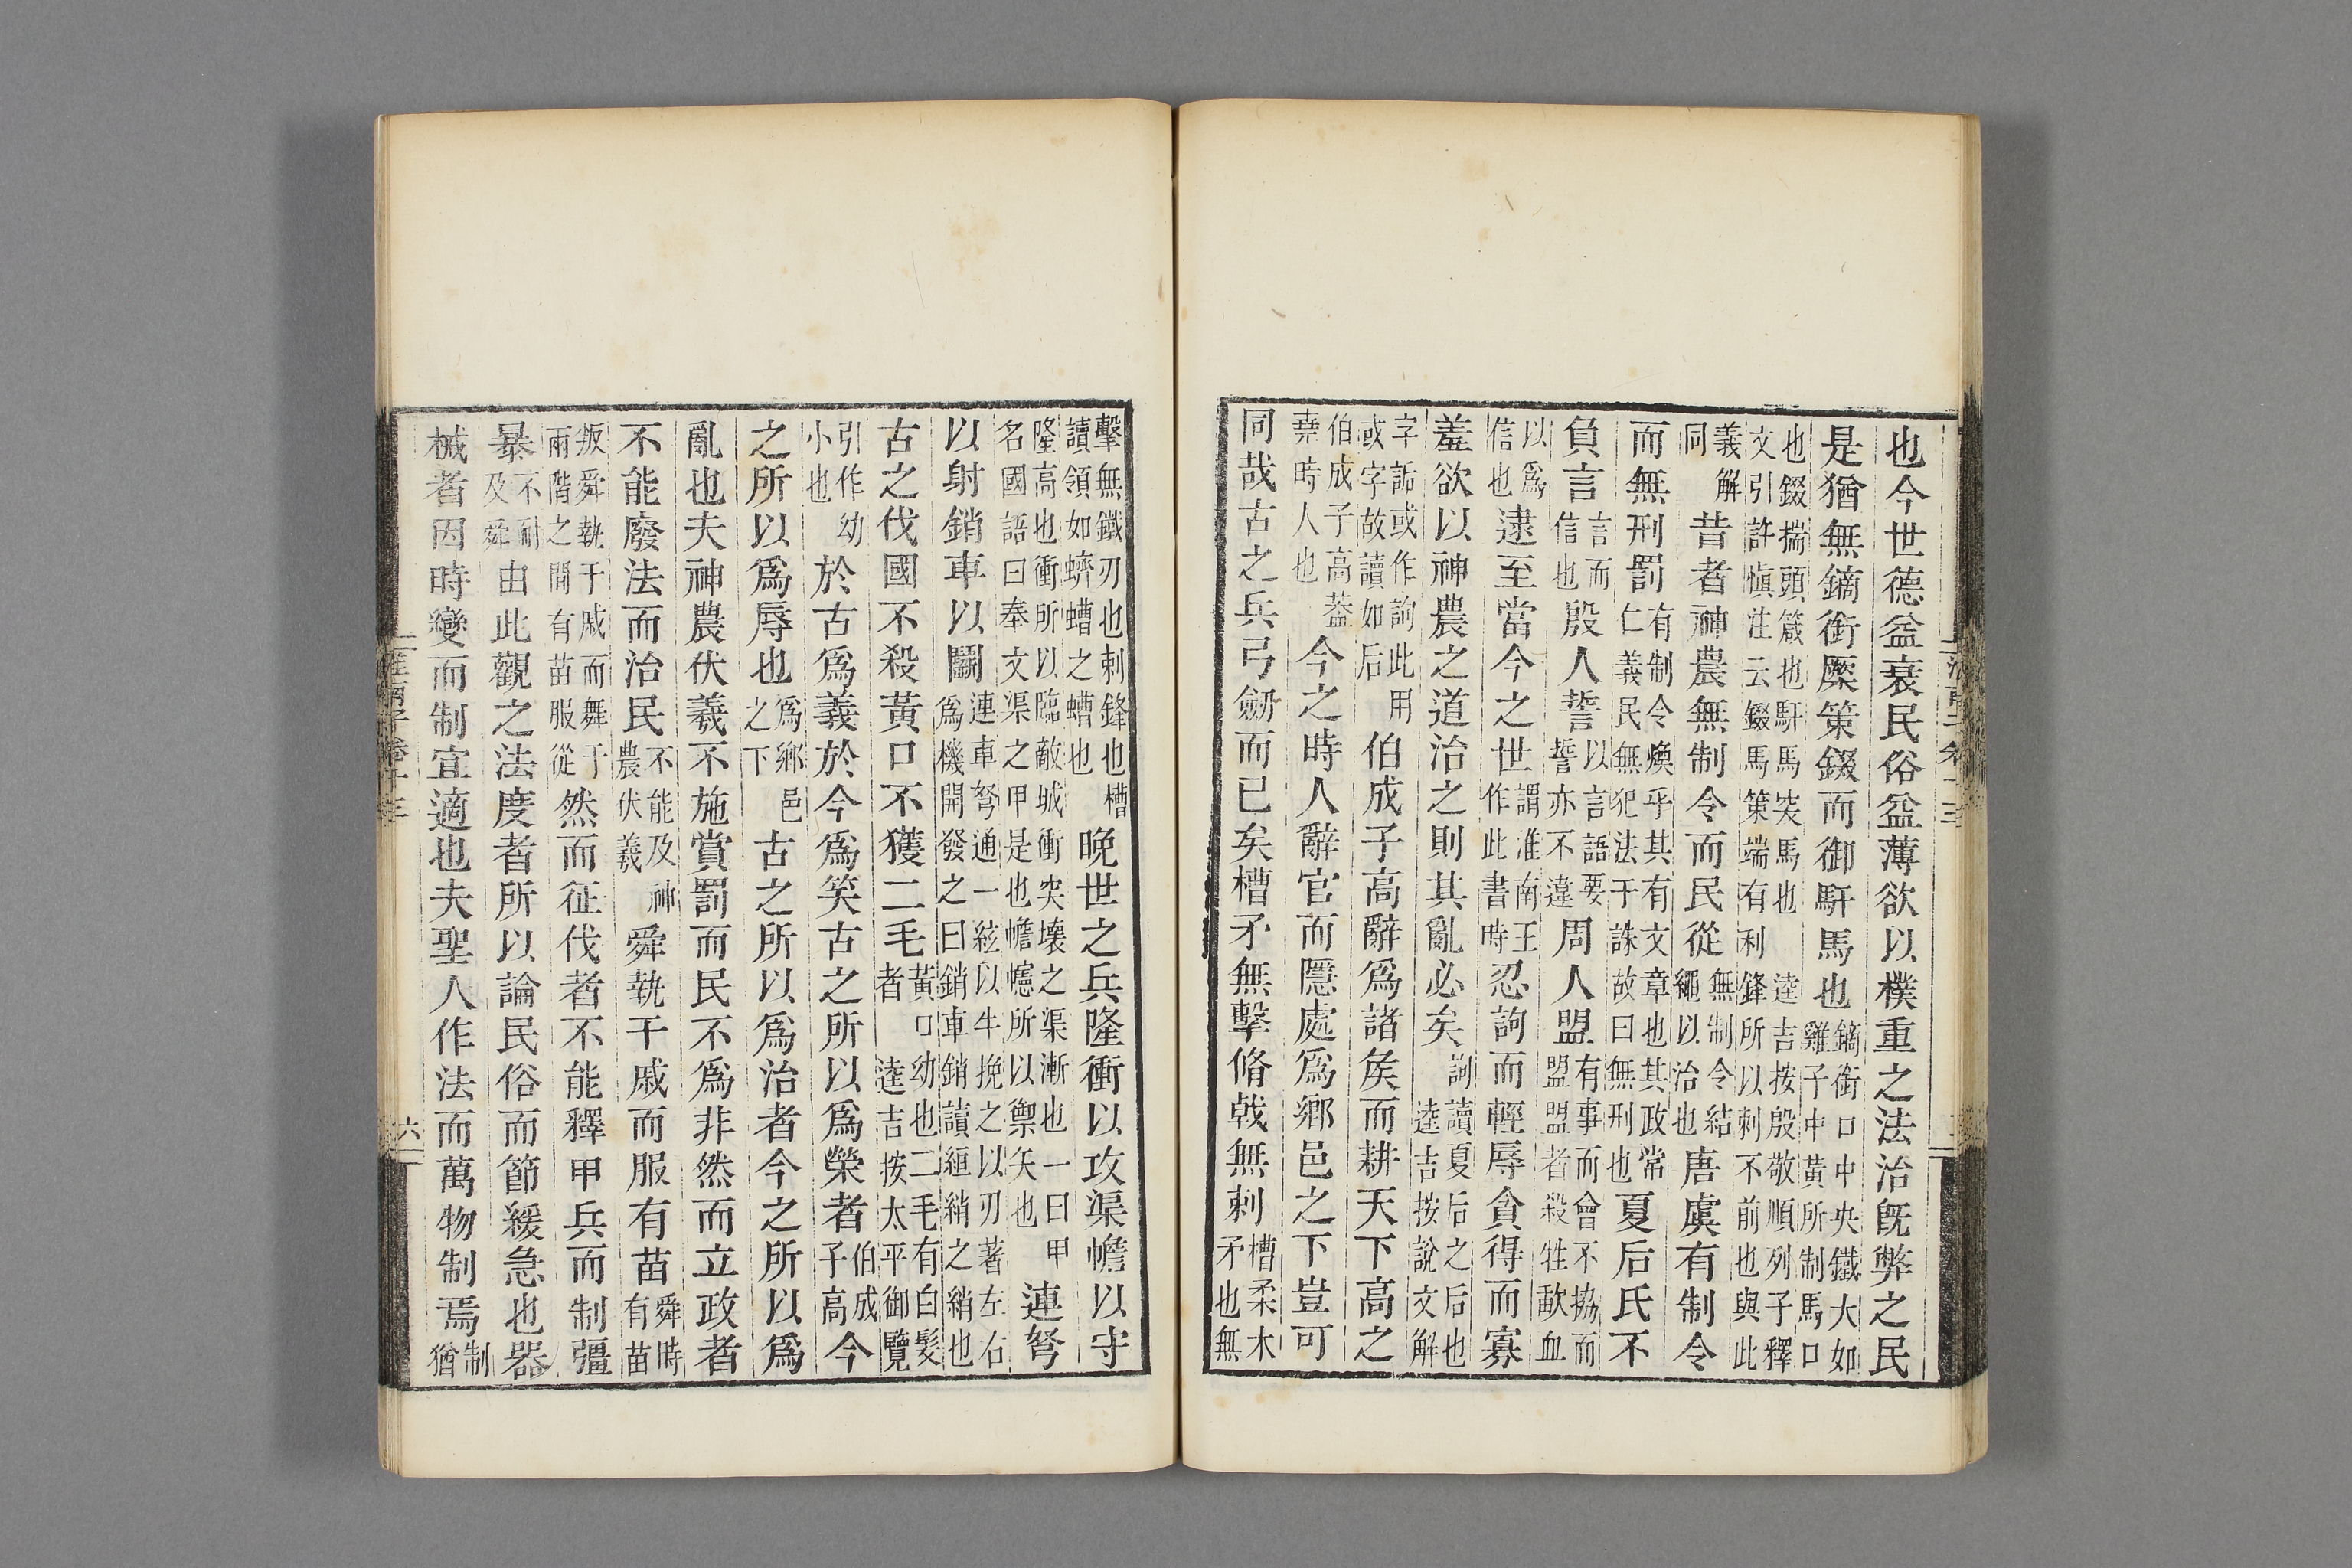 也今世德益衰民俗益薄欲以樸重之法治旣弊之民
是猶無鏑銜橜策錣而御馯馬也鏑銜口中央鐵大如雞子中黃所制馬口
也錣揣頭箴也馯馬突馬也 逵吉按殷敬順列子釋文引許愼注云錣馬策端有利鋒所以刺不前也與此
義解同昔者神農無制令而民從無制令結繩以治也唐虞有制令
而無刑罰有制令煥乎其有文章也其政常仁義民無犯法干誅故曰無刑也夏后氏不
負言言而信也殷人誓以言語要誓亦不違周人盟有事而會不協而盟盟者殺牲歃血
以爲信也逮至當今之世謂淮南王作此書時忍訽而輕辱貪得而寡
羞欲以神農之道治之則其亂必矣訽讀夏后之后也 逵吉按說文解
字詬或作訽此用或字故讀如后伯成子高辭爲諸矦而耕天下高之
伯成子高葢堯時人也今之時人辭官而隱處爲鄉邑之下豈可
同哉古之兵弓劒而已矣槽矛無擊脩戟無刺槽柔木矛也無
擊無鐵刃也刺鋒也槽讀領如蠐螬之螬也晚世之兵隆衝以攻渠幨以守
隆高也衝所以臨敵城衝突壞之渠漸也一曰甲名國語曰奉文渠之甲是也幨幰所以禦矢也連弩
以射銷車以鬭連車弩通一絃以牛挽之以刃著左右爲機開發之曰銷車銷讀絙綃之綃也
古之伐國不殺黃口不獲二毛黃口幼也二毛有白髮者 逵吉按太平御覽
引作幼小也於古爲義於今爲笑古之所以爲榮者伯成子高今
之所以爲辱也爲鄉邑之下古之所以爲治者今之所以爲
亂也夫神農伏羲不施賞罰而民不爲非然而立政者
不能廢法而治民不能及神農伏羲舜執干戚而服有苗舜時有苗
叛舜執干戚而舞于兩階之間有苗服從然而征伐者不能釋甲兵而制彊
暴不耐及舜由此觀之法度者所以論民俗而節緩急也器
械者因時變而制宜適也夫聖人作法而萬物制焉制猶
淮南子卷十三
六